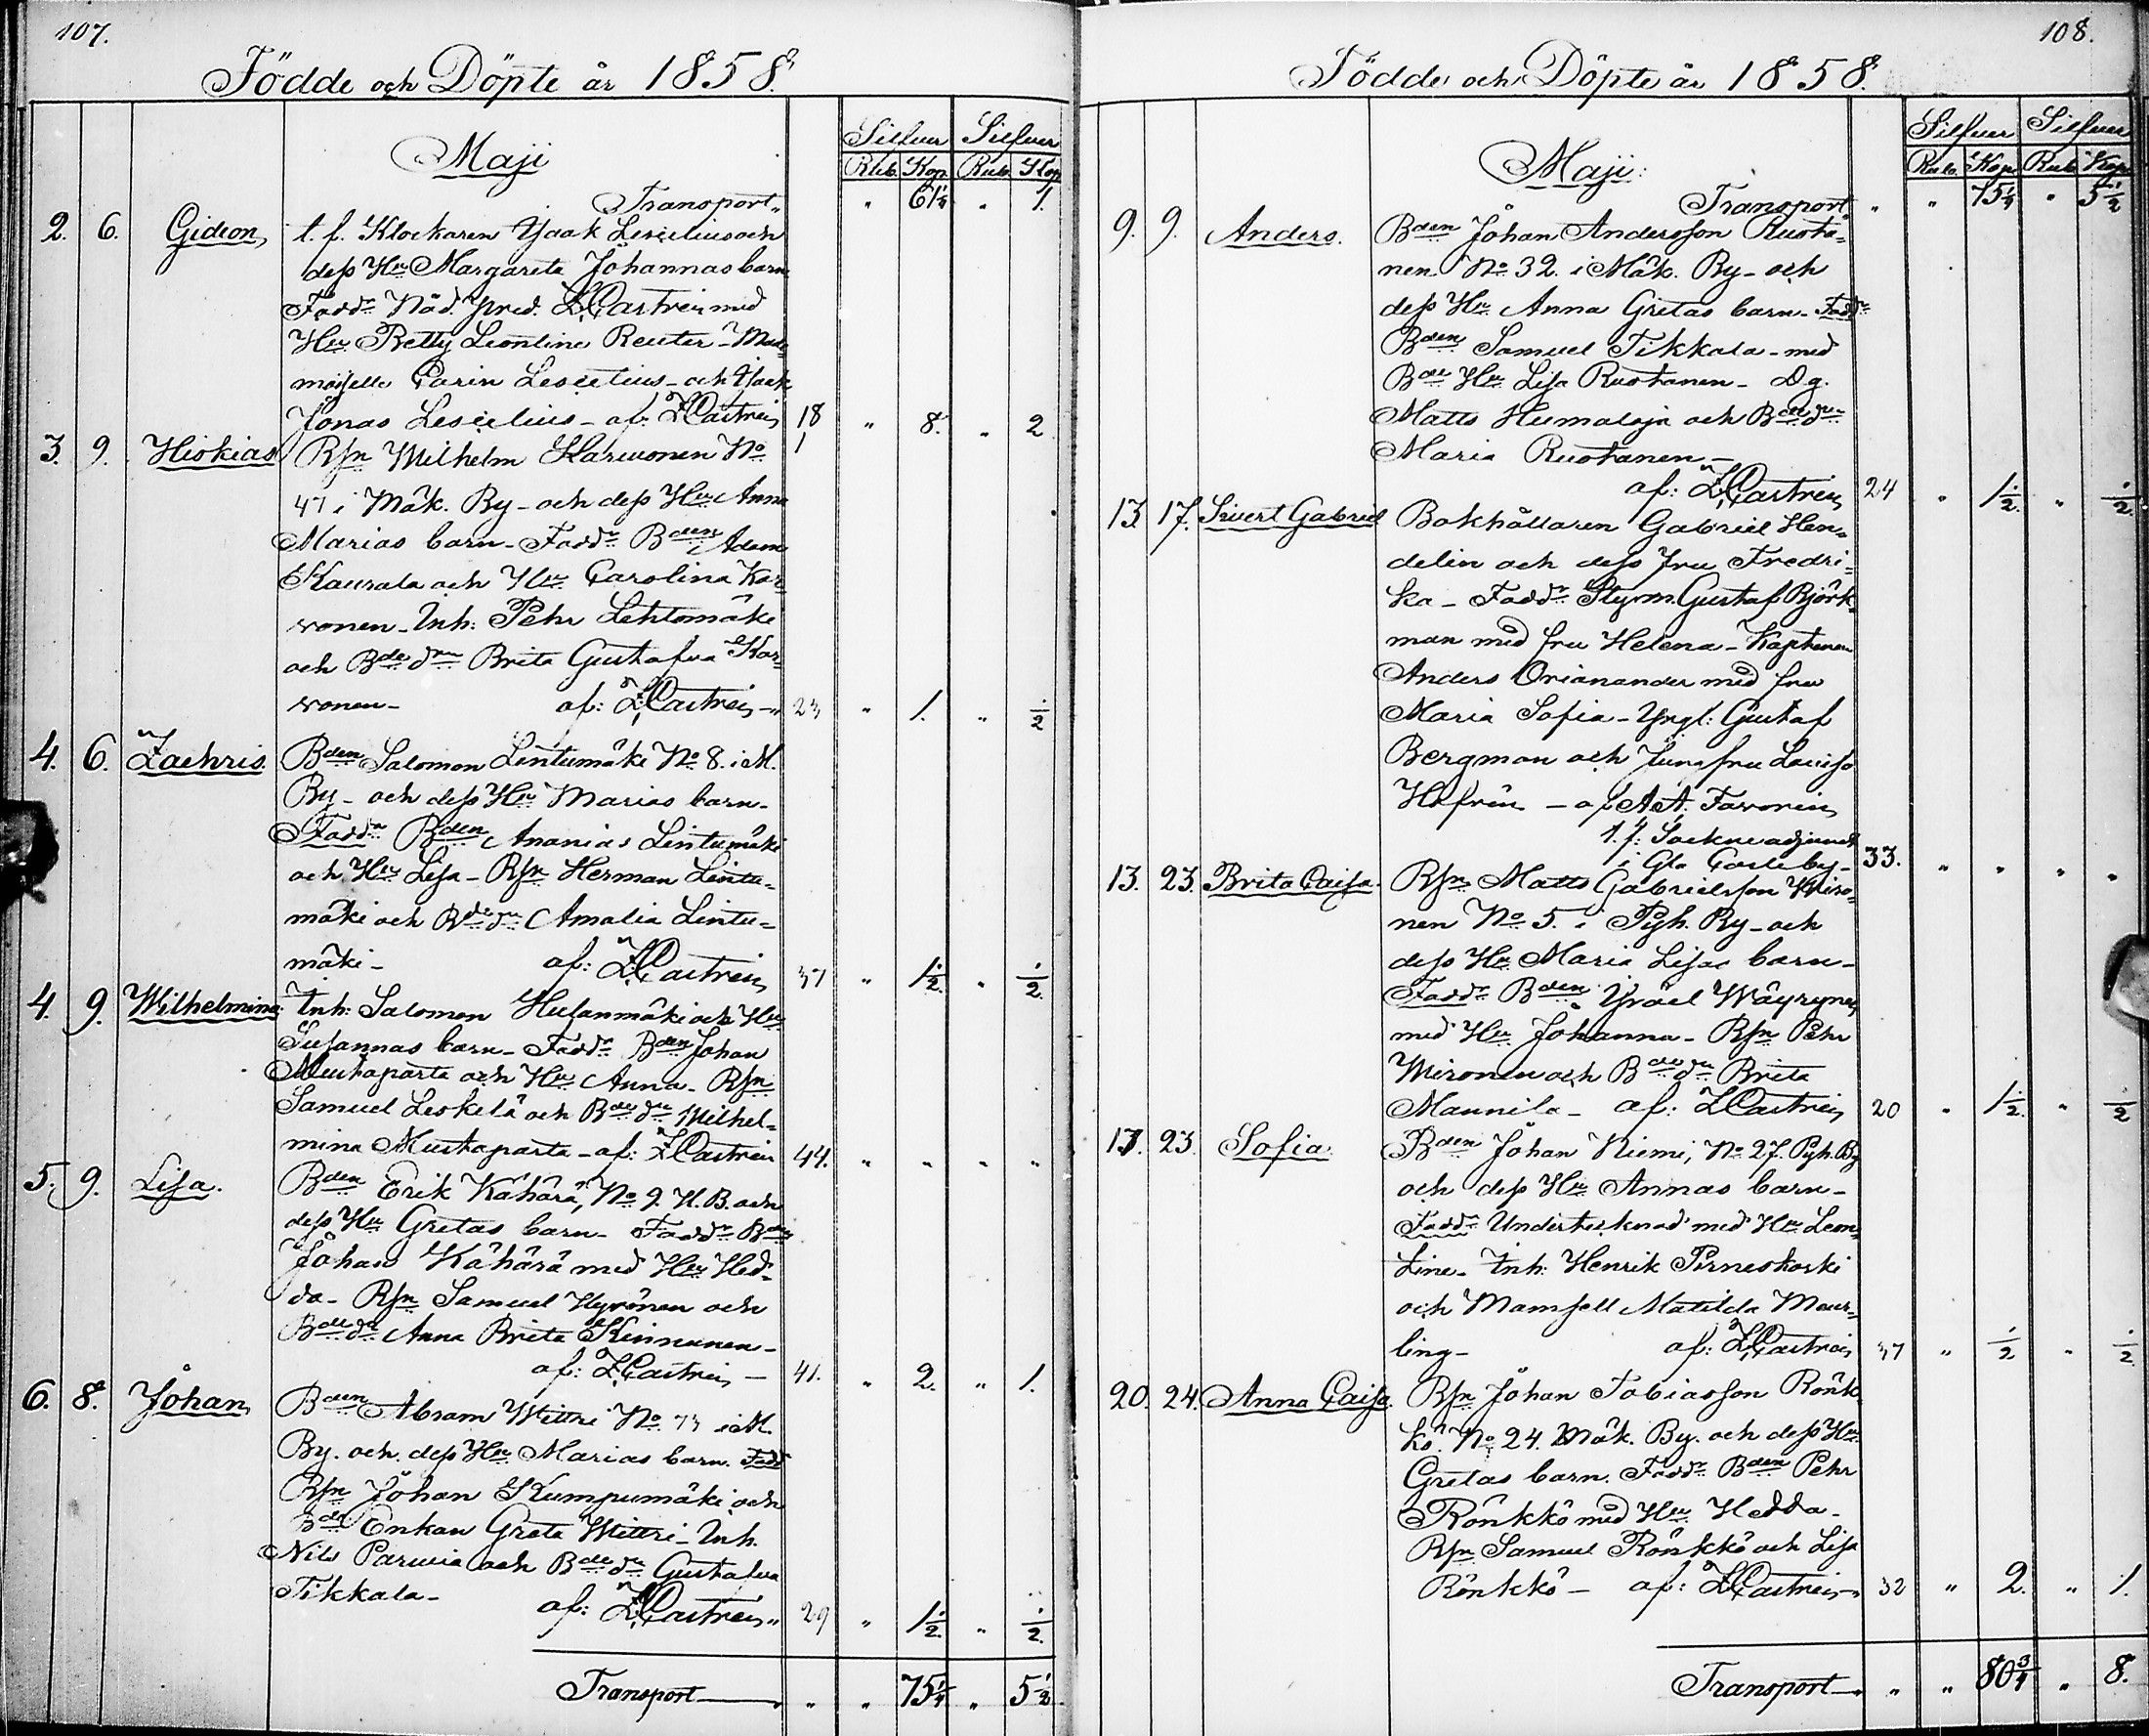 107.
Födde och Döpte år 1858.
Silfver Silfver
Maji
Rub. Kop. Rub. Kop
Transport „ „ 61¼ „ 1.
2. 6. Gideon, t. f. Klockaren Isaak Leselius och
dess Hu Margareta Johannas barn
Faddr Nåd. pred. Z. Castrén med
Hu Betty Leontine Reuter - Made-
moiselle Carin Leselius - och Isaak
Jonas Leselius - af: Z. Castrén 18 „ 8. „ 2
3. 9. Hiskias Bsn Wilhelm Karwonen No 1
47 i Mäk. By - och dess Hu Anna
Marias barn - Faddr Bden Adam
Kaurala och Hu Carolina Kar-
vonen - Inh: Pehr Lehtomäki
och Bde dr Brita Gustafva Kar-
vonen - af: Z. Castrén - 23 „ 1. „ ½
4. 6. Zachris. Bden Salomon Lintumäki No 8. i M.
By - och dess Hu Marias barn -
Faddr Bden Ananias Lintumäki
och Hu Lisa - Bsn Herman Lintu-
mäki och Bde dr Amalia Lintu-
mäki - af: Z. Castrén 37 „ 1½. „ ½.
4. 9. Wilhelmina: Inh: Salomon Husanmäki och Hu
Susannas barn - Faddr Bden Johan
Mustaparta och Hu Anna - Bsn
Samuel Leskelä och Bde dr Wilhel-
mina Mustaparta - af: Z. Castrén 44. „ „ „ „
5. 9. Lisa. Bden Erik Kähärä, No 9. H. B. och
dess Hu Gretas barn - Faddr Bden
Johan Kähärä med Hu Hed-
da - Bsn Samuel Hyvönen och
Bde dr Anna Brita Kinnunen -
af: Z. Castrén - 41. „ 2. „ 1.
6. 8. Johan, Bden Abram Wittri No 73 i M.
By. och dess Hu Marias barn. Fadd
Bsn Johan Kumpumäki och
Bde Enkan Greta Wittri - Inh.
Nils Parwia och Bde dr Gustafva
Tikkala - af: Z. Castrén „ 29 „ 1½. „ ½.
Transport „ „ 75¼ „ 5½
108.
Födde och Döpte år 1858.
Silfver Silfver
Maji:
Rub. Kop. Rub. Kop.
Transport „ „ 75¼ „ 5½
9. 9. Anders. Bden Johan Andersson Ruota-
nen No 32. i Mäk. By - och
dess Hu Anna Gretas barn - Faddr
Bden Samuel Tikkala - med
Bde Hu Lisa Ruotanen - Dg.
Matts Humaloja och Bde dr
Maria Ruotanen -
af: Z. Castrén 24 „ 1½. „ ½.
13. 17. Sivert Gabriel Bokhållaren Gabriel Hen-
delin och dess fru Fredri-
ka - Faddr Styrm. Gustaf Björk-
man med fru Helena - Kaptenen
Anders Orianander med fru
Maria Sofia - Yngl: Gustaf
Bergman och Jungfru Lovisa
Hofrén - af A. A. Favorin,
t. f. Sockneadjunct
i Gla Carleby - 33. „ „ „ „
13. 23. Brita Caisa. Bsn Matts Gabrielsson Wiro-
nen No 5. i Pyh. By - och
dess Hu Maria Lisas barn -
Faddr Bden Israel Wäyrynen
med Hu Johanna - Bsn Pehr
Wironen och Bde dr Brita
Mannila - af: Z. Castrén 20 „ 1½. „ ½
13. 23. Sofia. Bden Johan Niemi, No 27. Pyh. By
och dess Hu Annas barn -
Faddr Undertecknad med Hu Leon-
tine - Inh: Henrik Pirneskoski
och Mamsell Matilda Maur-
ling - af: Z. Castrén 37 „ ½ „ ½
20. 24. Anna Caisa. Bsn Johan Tobiasson Rönk-
kö. No 24. Mäk. By. och dess Hu
Gretas barn. Faddr Bden Pehr
Rönkkö med Hu Hedda -
Bsn Samuel Rönkkö och Lisa
Rönkkö - af: Z. Castrén - 32 „ 2. „ 1.
Transport „ „ 80¾ „ 8.